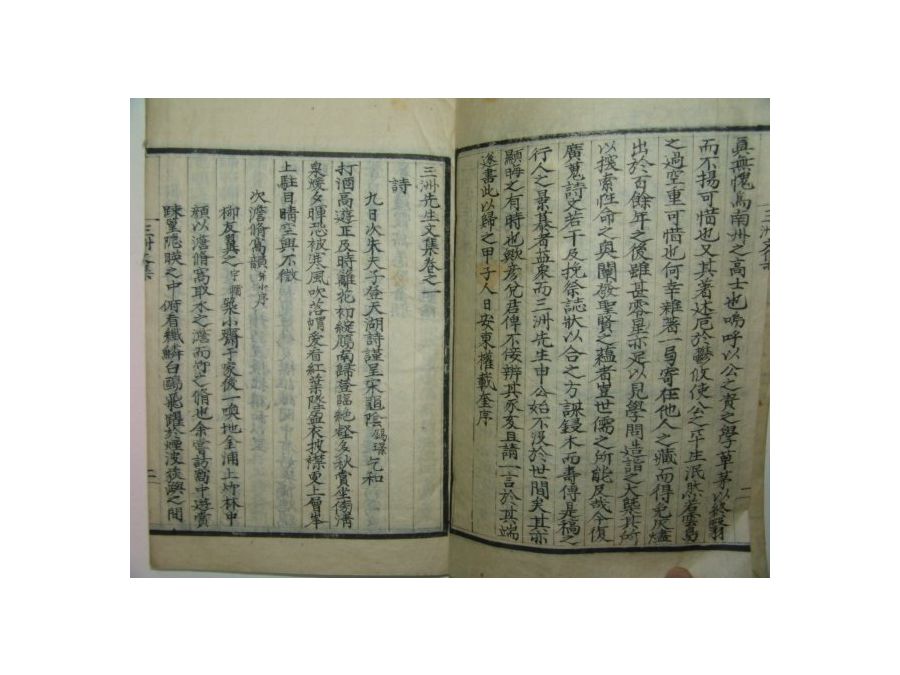 真無愧爲南州之高士也嗚呼以公之資之學草茅以終翳羽
而不揚可惜也又其著述厄於鬱攸使公之平生泯然若雲鳥
之過空重可惜也何幸雜著一局寄在他人之藏而得免灰燼
出於百餘年之後雖甚零星亦足以見學問造詣之大槩其所
以探索性命之奧闡發聖賢之蘊者豈世儒之所能及哉今復
廣蒐詩文若干及挽祭誌狀以合之方謀鋟木而壽傳是稿之
行人之景慕者益衆而三洲先生申公始不沒於世間矣其亦
顯晦之有時也歟彦兌君俾不佞辨其豕亥且請一言於其端
遂書此以歸之甲子人日安東權載奎序
三洲文集
三洲先生文集卷之一
詩
九日次朱夫子登天湖詩謹呈宋龜陰錫璟乞和
打酒高遊正及時離花初綻鴈南歸登臨絶壑多秋賞坐傍淸
泉煖夕暉恐被寒風吹落帽愛看紅葉墜盃衣披襟更上層峯
上駐目晴空興不微
次澹脩窩韻幷小序
柳友翼之字 築小齋于家後一喚地金浦上竹林中
顔以澹脩窩取水之澹而竹之脩也余嘗訪窩中遊賞
踈篁隱暎之中俯看纖鱗白鷗飛躍於煙波 嶼之間
三洲文集